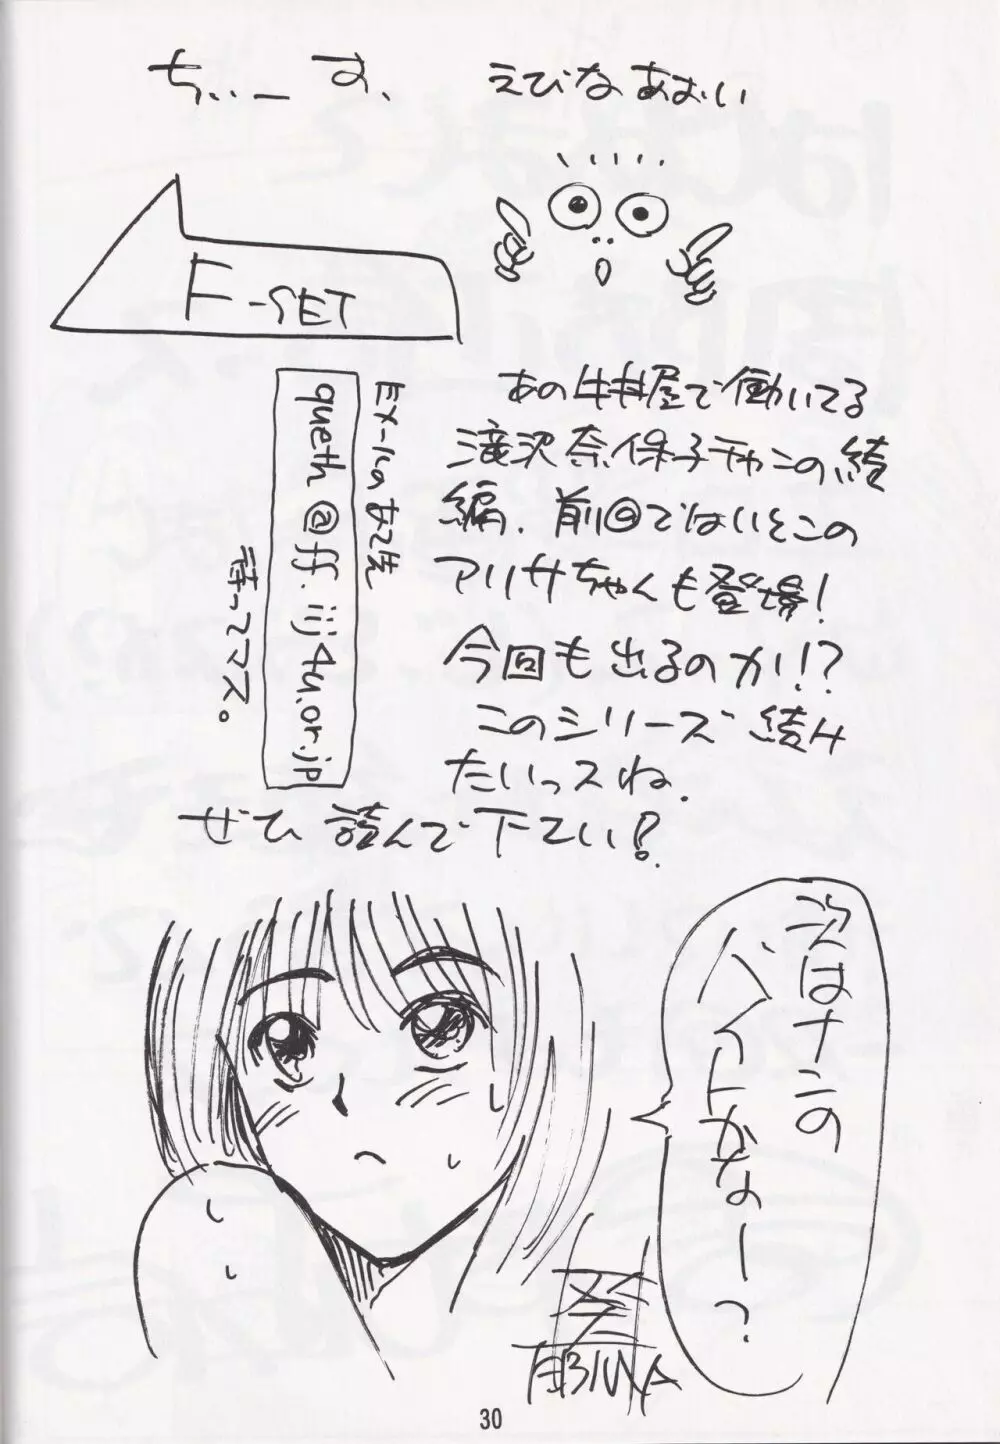 ちぃーす、
えびなあおい
F-SET
あの牛丼屋で働いてる
滝沢奈保子チャンの続
編. 前回ではいとこの
アリサちゃんも登場!
今回も出るのか!!?
このシリーズ続け
たいっスね.
ぜひ読んで下てい?
EX-ルのあて先
queth@ff.iij4u.or.jp
待ってマス。
次はナンの
バイトかなー?
30